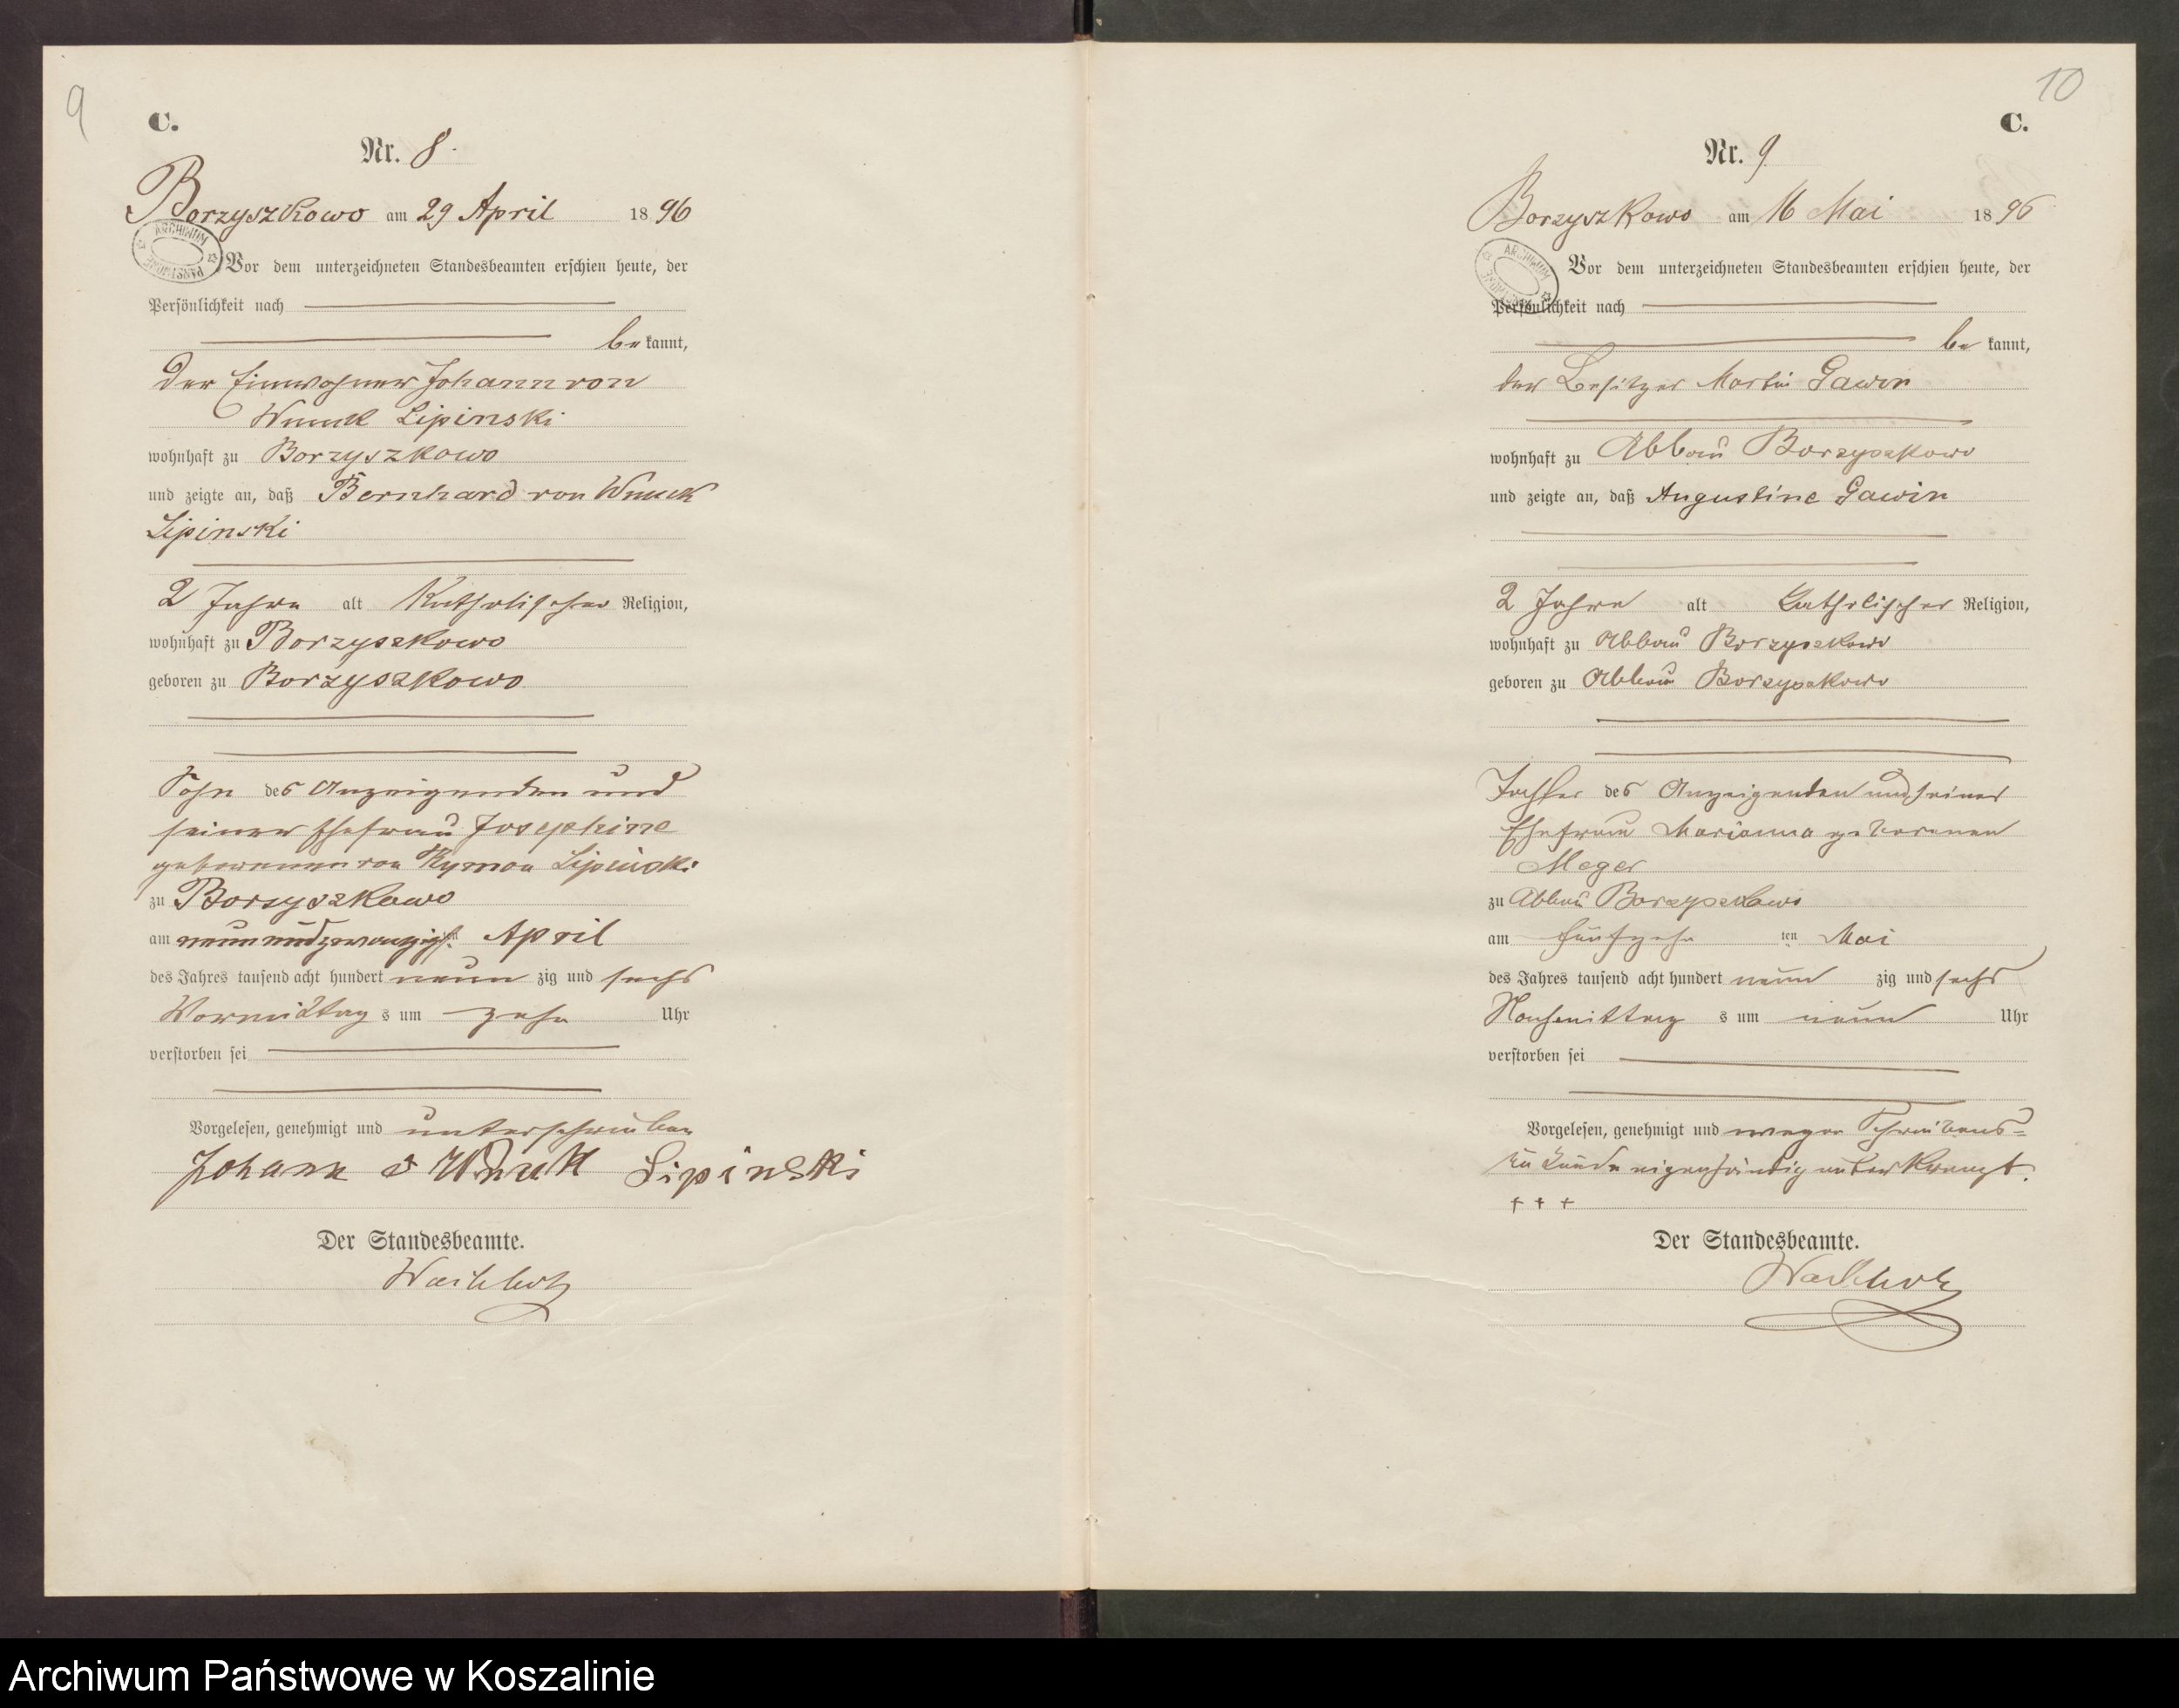 9
C.
Nr. 8.
Borzyszkowo am 29 April 1896
ARCHIWUM PAŃSTWOWE
Vor dem unterzeichneten Standesbeamten erschien heute, der
Persönlichkeit nach
bekannt,
der Einwohner Johann von
Wnuck Lipinski
wohnhaft zu Borzyszkowo
und zeigte an, daß Bernhard von Wnuck
Lipinski
2 Jahre alt Katholischer Religion,
wohnhaft zu Borzyszkowo
geboren zu Borzyszkowo
Sohn des Anzeigenden und
seiner Ehefrau Josephine
geborenen von Kymon Lipinski
zu Borzyszkowo
am neunundzwanzigst. April
des Jahres tausend acht hundert neunzig und sechs
Vormittags um zehn Uhr
verstorben sei
Vorgelesen, genehmigt und unterschrieben
Johann v Wnuk Lipinski
Der Standesbeamte.
Wachholz
10
C.
Nr. 9.
Borzyszkowo am 16 Mai 1896
ARCHIWUM PAŃSTWOWE
Vor dem unterzeichneten Standesbeamten erschien heute, der
Persönlichkeit nach
bekannt,
der Besitzer Martin Gawin
wohnhaft zu Abbau Borzyszkowo
und zeigte an, daß Augustine Gawin
2 Jahre alt Katholischer Religion,
wohnhaft zu Abbau Borzyszkowo
geboren zu Abbau Borzyszkowo
Tochter des Anzeigenden und seiner
Ehefrau Marianna geborenen
Meger
zu Abbau Borzyszkowo
am fünfzehnten Mai
des Jahres tausend acht hundert neunzig und sechs
Nachmittags um neun Uhr
verstorben sei
Vorgelesen, genehmigt und wegen Schreibens-
unkunde eigenhändig unterkreuzt.
† † †
Der Standesbeamte.
Wachholz
Archiwum Państwowe w Koszalinie